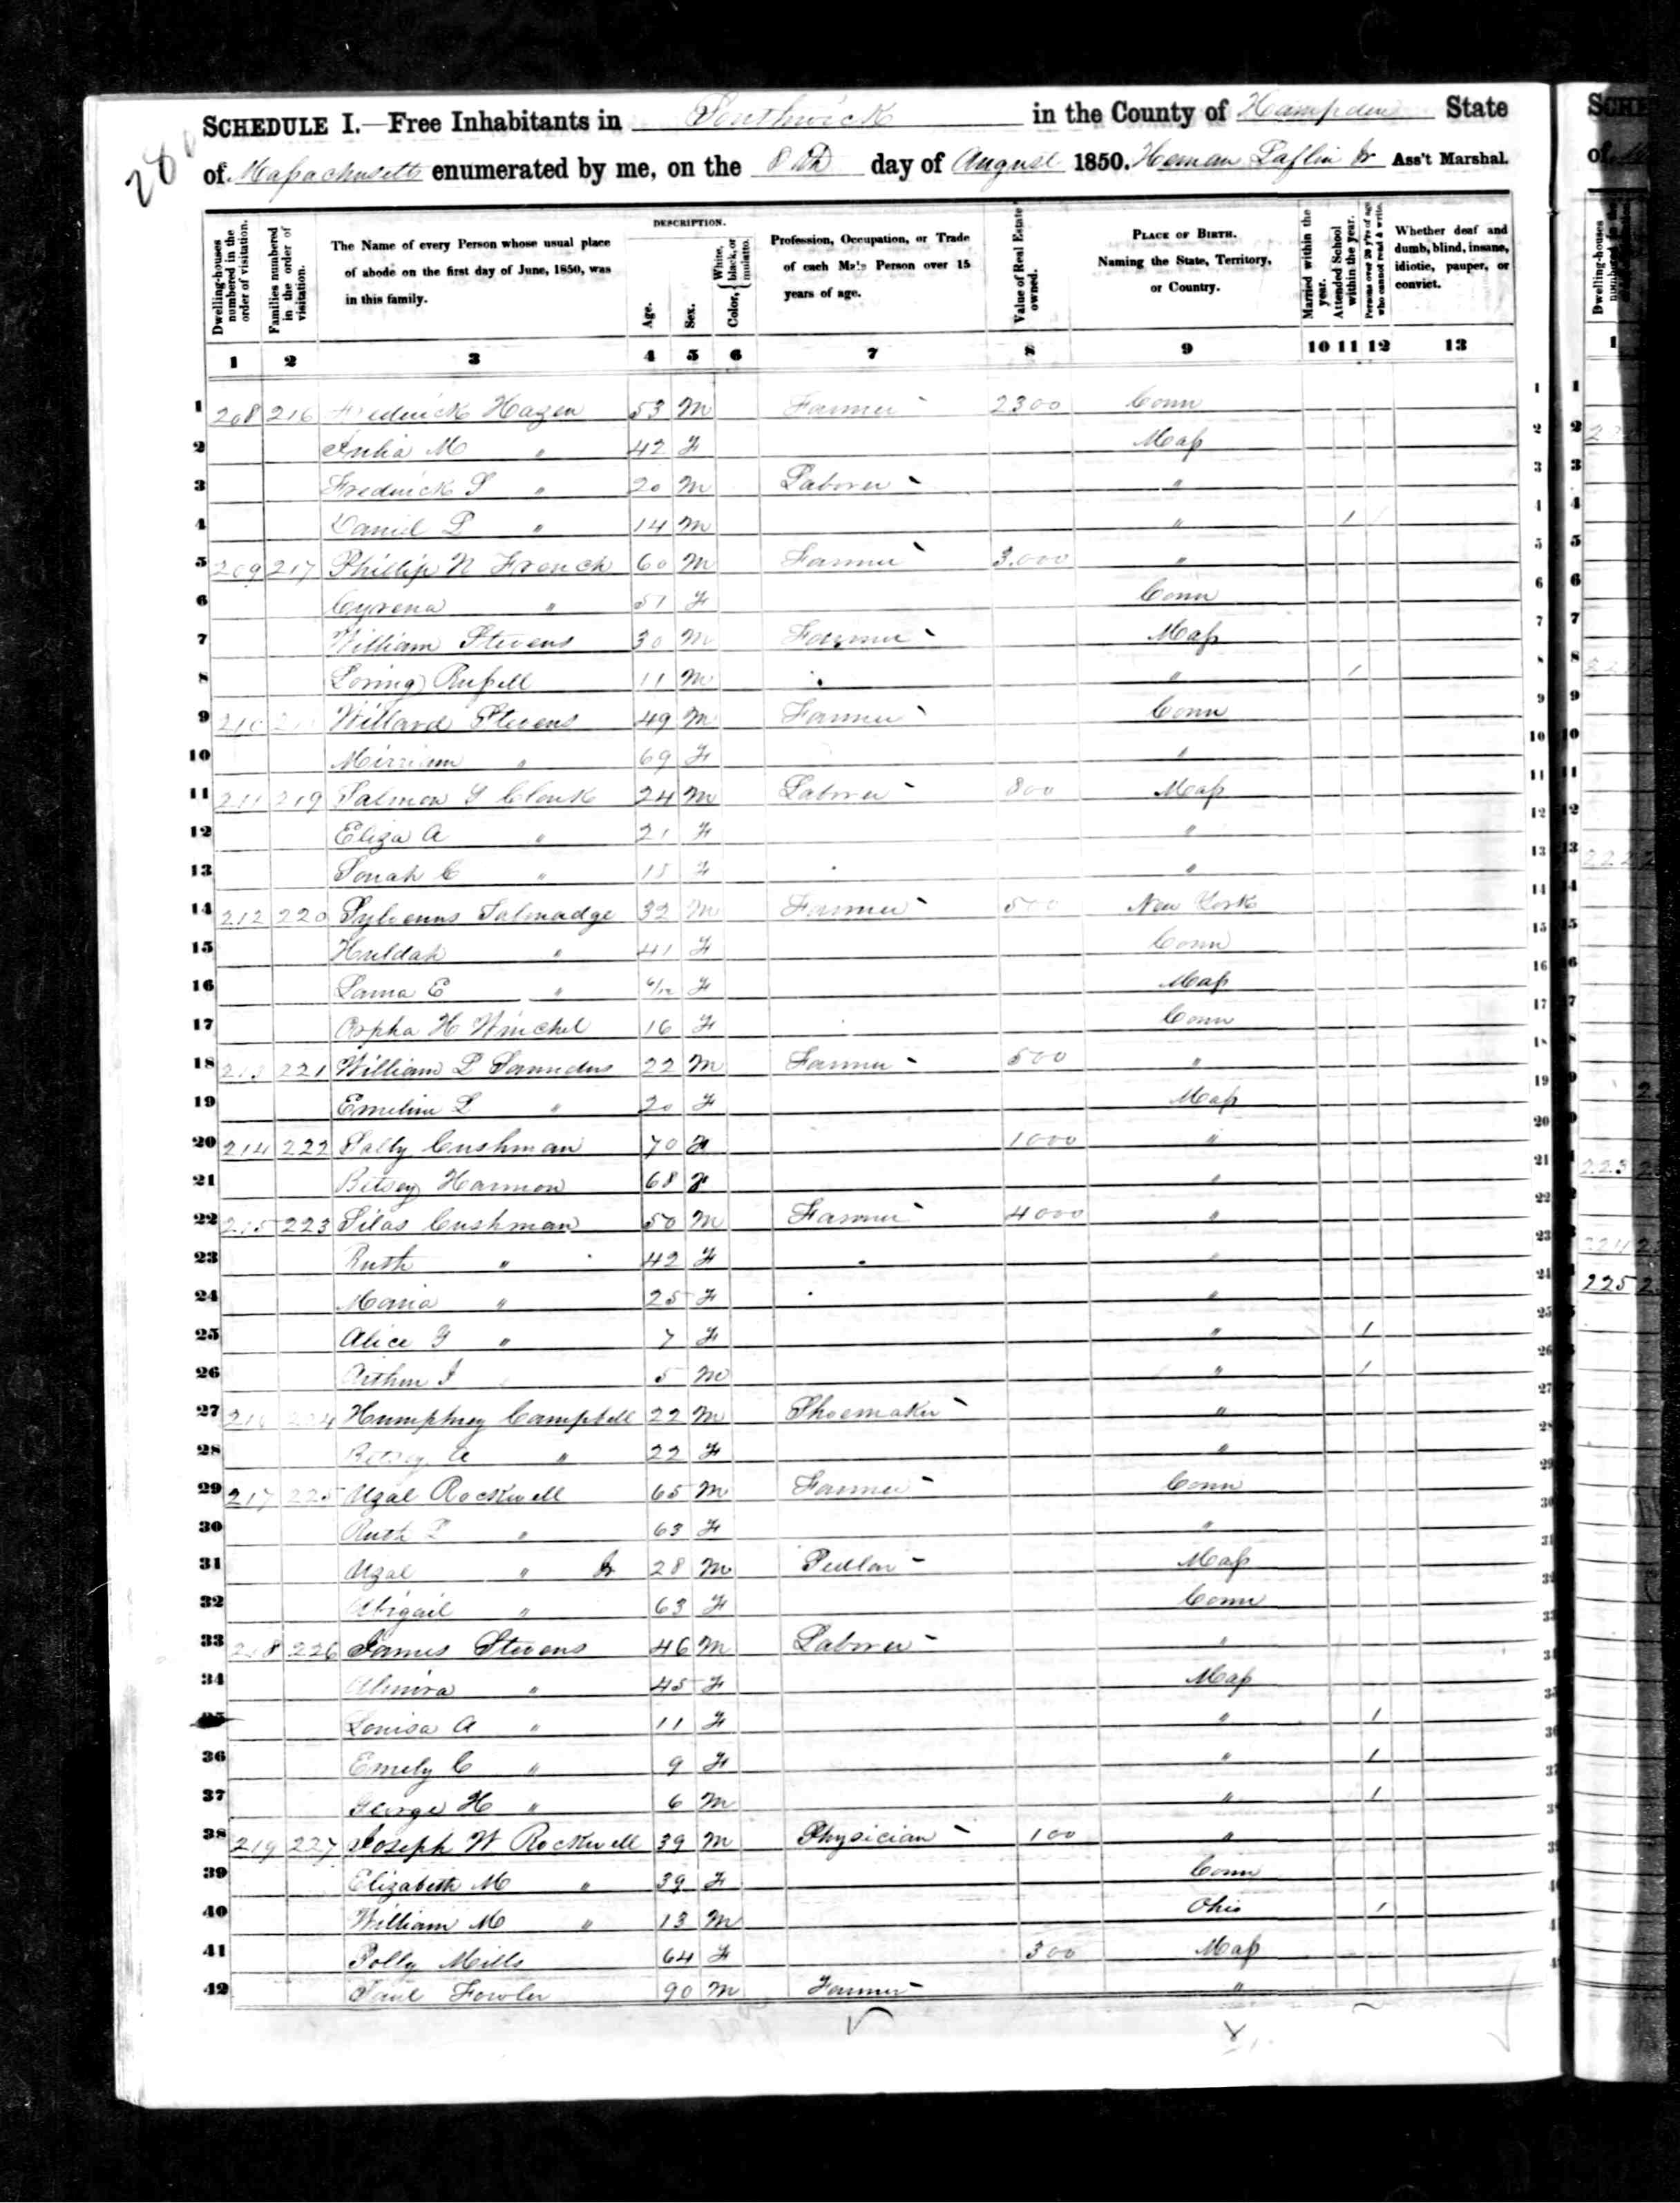 280
SCHEDULE I.—Free Inhabitants in Southwick in the County of Hampden State
of Massachusetts enumerated by me, on the 8th day of August 1850. Heman Laflin Jr Ass't Marshal.
Dwelling-houses numbered in the order of visitation.
Families numbered in the order of visitation.
The Name of every Person whose usual place of abode on the first day of June, 1850, was in this family.
DESCRIPTION.
Age.
Sex.
Color, { White, black, or mulatto.
Profession, Occupation, or Trade of each Male Person over 15 years of age.
Value of Real Estate owned.
PLACE OF BIRTH. Naming the State, Territory, or Country.
Married within the year.
Attended School within the year.
Persons over 20 y'rs of age who cannot read & write.
Whether deaf and dumb, blind, insane, idiotic, pauper, or convict.
1 2 3 4 5 6 7 8 9 10 11 12 13
1 208 216 Frederick Hazen 53 M Farmer 2300 Conn 1
2 Julia M " 42 F Mass 2
3 Frederick S " 20 M Laborer " 3
4 Daniel L " 14 M " 1 4
5 209 217 Phillip N French 60 M Farmer 3.000 " 5
6 Cyrena " 51 F Conn 6
7 William Stevens 30 M Farmer Mass 7
8 Loring Russell 11 M " 1 8
9 210 Willard Stevens 49 M Farmer Conn 9
10 Mirriam " 69 F " 10
11 211 219 Salmon G Clark 24 M Laborer 800 Mass 11
12 Eliza A " 21 F " 12
13 Sarah C " F " 13
14 212 220 Sylvenus Talmadge 32 M Farmer 500 New York 14
15 Huldah " 41 F Conn 15
16 Laura E " 6/12 F Mass 16
17 Orpha H Winchel 16 F Conn 17
18 213 221 William L Saunders 22 M Farmer 500 " 18
19 Emeline L " 20 F Mass 19
20 214 222 Sally Cushman 70 F 1000 " 20
21 Betsey Harmon 68 F " 21
22 215 223 Silas Cushman 50 M Farmer 4000 " 22
23 Ruth " 42 F " 23
24 Maria " 25 F " 24
25 Alice G " 7 F " 1 25
26 Arthur J 5 M " 1 26
27 216 224 Humphrey Campbell 22 M Shoemaker " 27
28 Betsey A " 22 F " 28
29 217 225 Uzal Rockwell 65 M Farmer Conn 29
30 Ruth L " 63 F " 30
31 Uzal " Jr 28 M Pedlar Mass 31
32 Abigail " 63 F Conn 32
33 218 226 James Stevens 46 M Laborer " 33
34 Almira " 45 F Mass
35 Louisa A " 11 F " 1
36 Emily C " 9 F " 1
37 George H " 6 M " 1
38 219 227 Joseph W Rockwell 39 M Physician 100 "
39 Elizabeth M " 39 F Conn
40 William M " 13 M Ohio 1
41 Polly Mills 64 F 300 Mass
42 Saul Fowler 90 M Farmer "